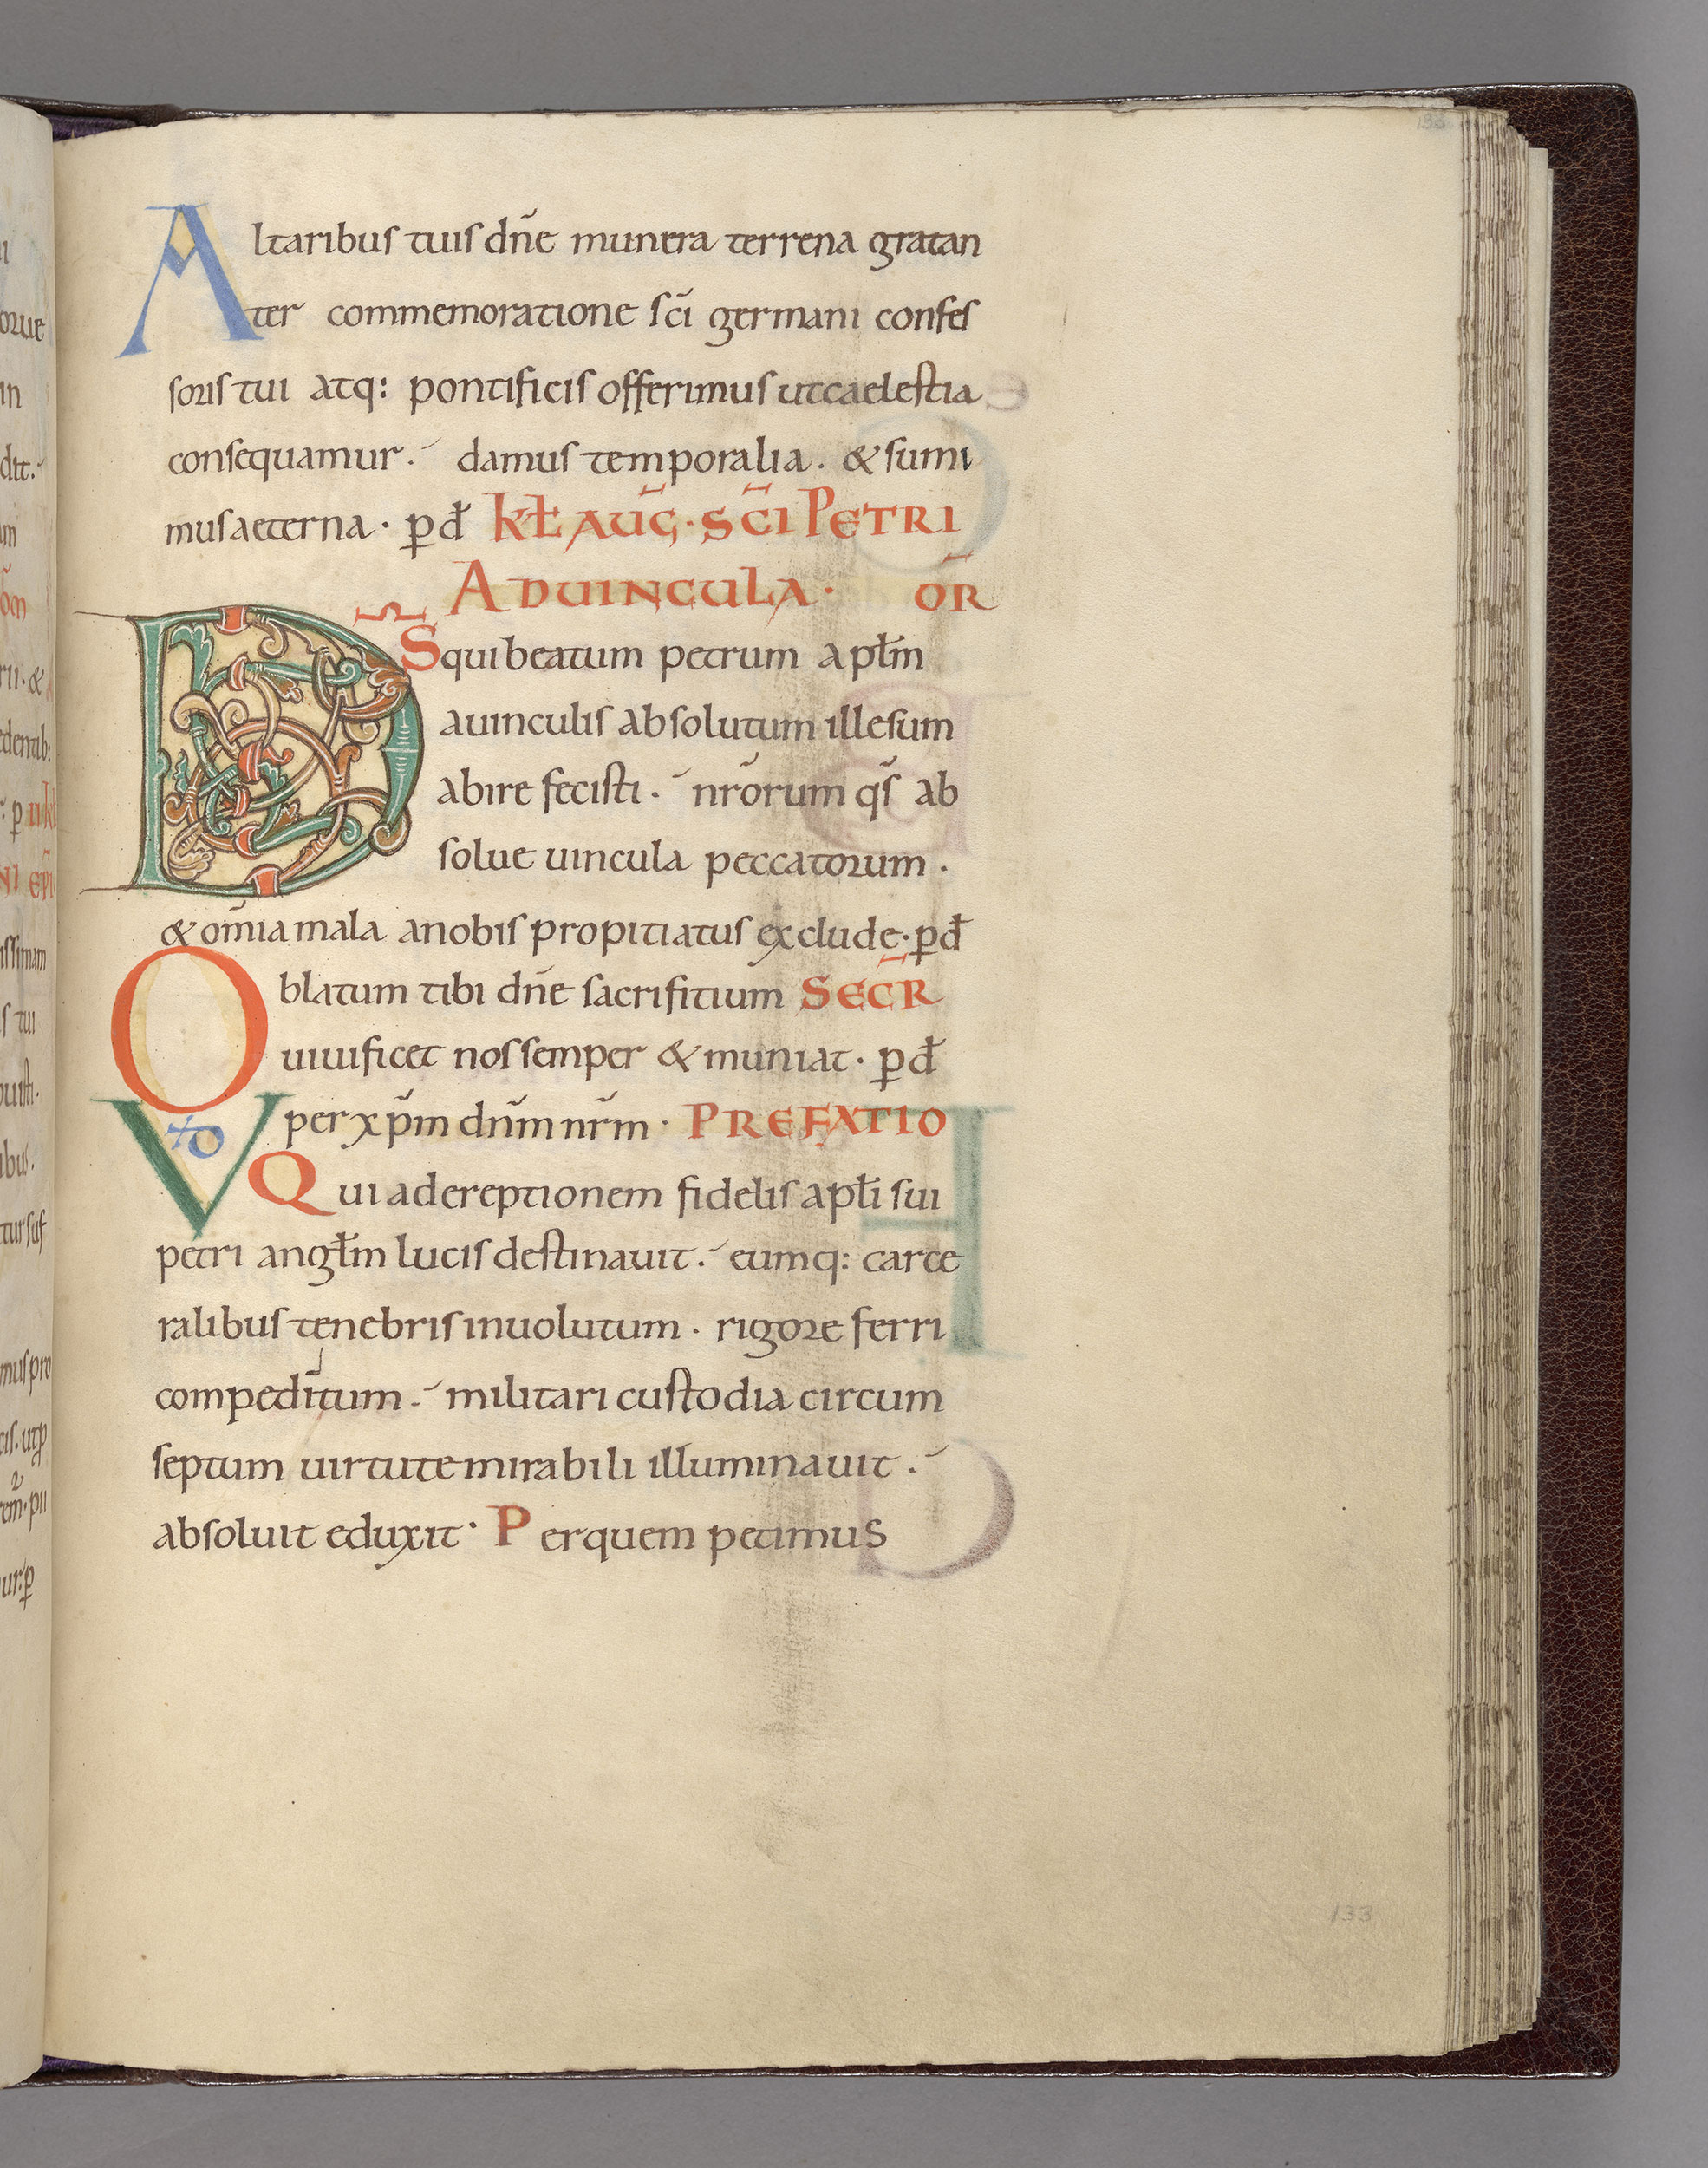 133
Altaribus tuis dn̄e munera terrena gratan
ter commemoratione sc̄i germani confes
soris tui atq: pontificis offerimus ut caelestia
consequamur. damus temporalia. & sumi
mus aeterna. p̄ d̄ kł AUḠ. SC̄I PETRI
AD UINCULA. OR̄
D̄S qui beatum petrum apłm
a uinculis absolutum illesum
abire fecisti. nr̄orum qs̄ ab
solue uincula peccatorum.
& om̄ia mala a nobis propitiatus exclude. p̄ d̄
Oblatum tibi dn̄e sacrifitium SECR̄
uiuificet nos semper & muniat. p̄ d̄
V+D per xp̄m dn̄m nr̄m. PREFATIO
Qui ad ereptionem fidelis apłi sui
petri angłm lucis destinauit. eumq: carce
ralibus tenebris inuolutum. rigore ferri
compeditum. militari custodia circum
septum uirtute mirabili illuminauit.
absoluit eduxit. Per quem petimus
133